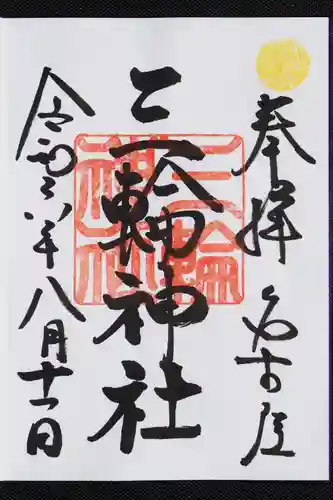 奉拝 名古屋
三輪神社
令和六年八月十一日
三輪
神社